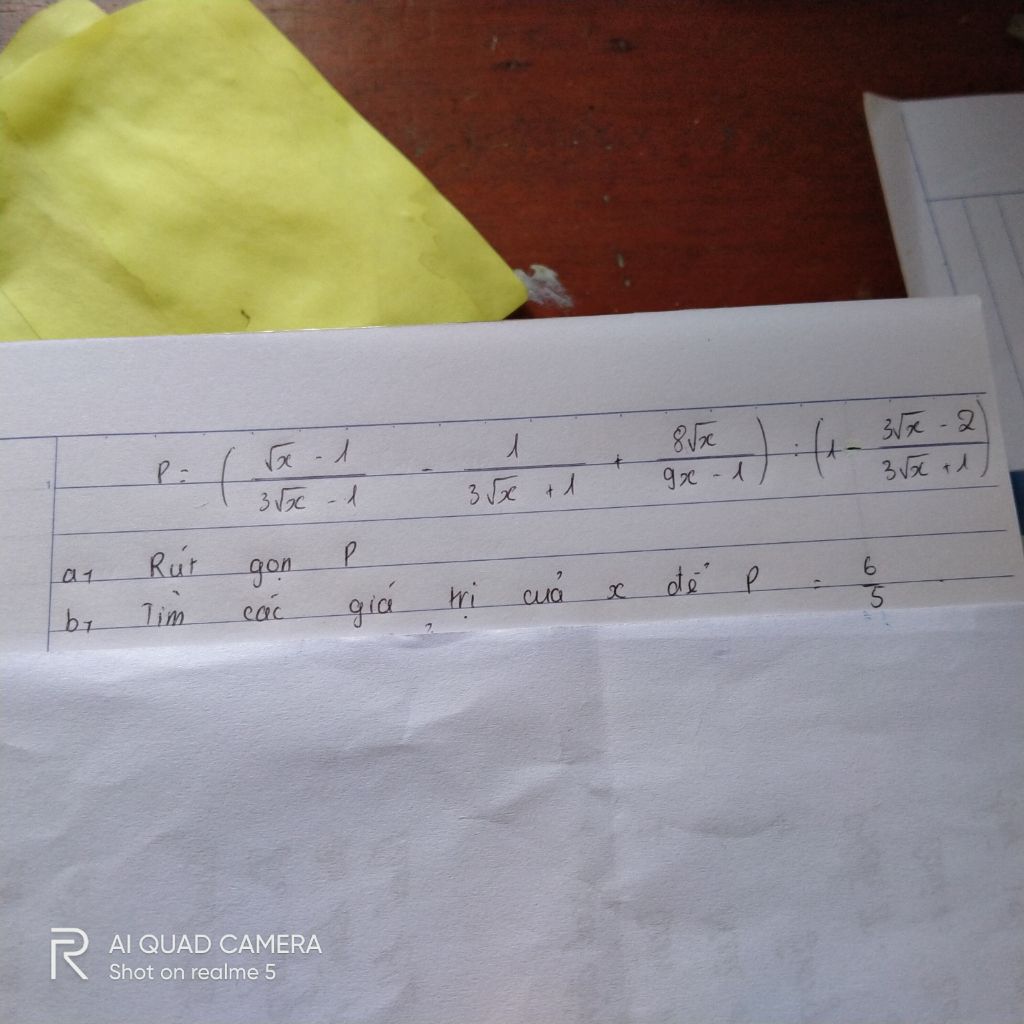 P = ( \frac{\sqrt{x} - 1}{3\sqrt{x} - 1} - \frac{1}{3\sqrt{x} + 1} + \frac{8\sqrt{x}}{9x - 1} ) : ( 1 - \frac{3\sqrt{x} - 2}{3\sqrt{x} + 1} )
a, Rút gọn P
b, Tìm các giá trị của x để P = \frac{6}{5}
AI QUAD CAMERA
Shot on realme 5